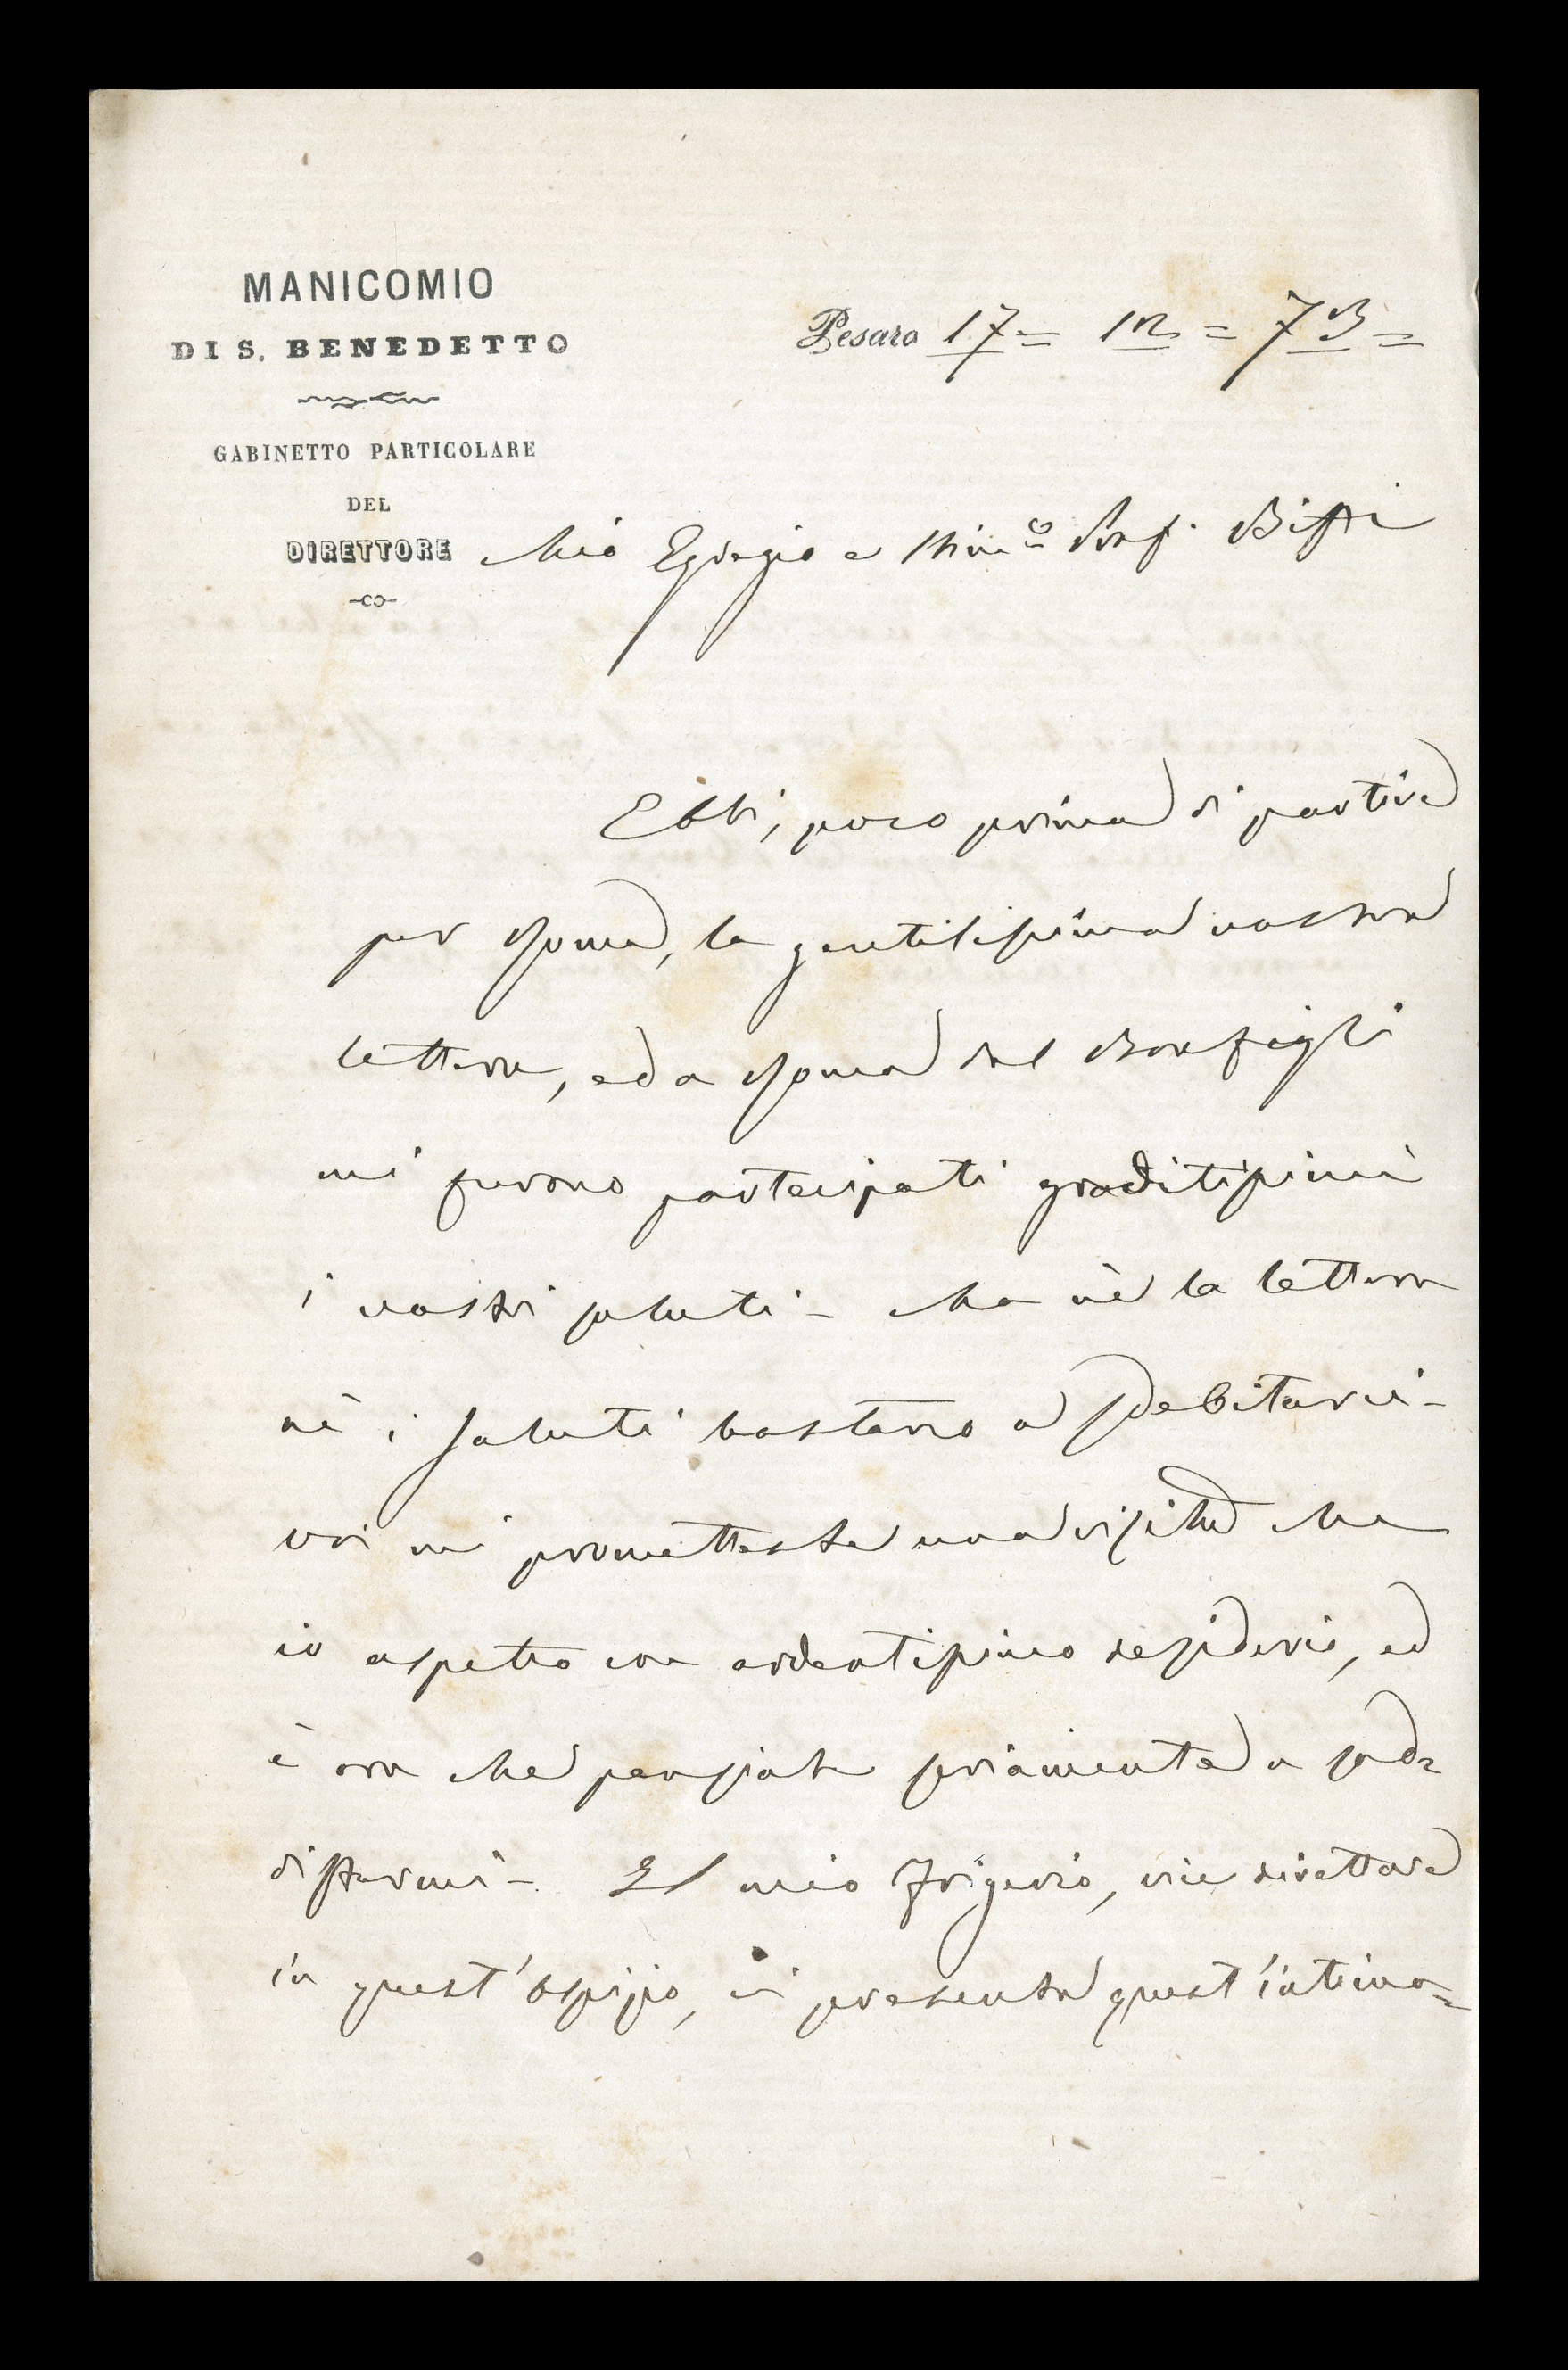 MANICOMIO
DI S. BENEDETTO
GABINETTO PARTICOLARE
DEL
DIRETTORE
Pesaro 17 = 12 = 73 =
Mio Egregio e Chim.o Prof. Biffi
Ebbi, poco prima di partire
per Roma, la gentilissima vostra
lettera, ed a Roma dal Bonfigli
mi furono partecipati graditissimi
i vostri saluti - Ma nè la lettera
nè i saluti bastano a sdebitarvi -
voi mi prometteste una visita che
io aspetto con ardentissimo desiderio, ed
è ora che pensiate seriamente a sod=
disfarmi - Il mio Frigerio, vice direttore
in quest'ospizio, vi presenta quest'intimo=